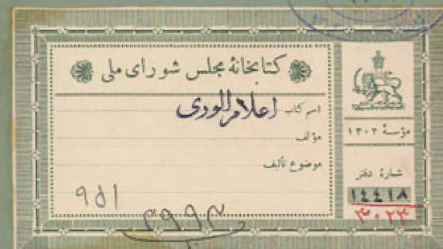 کتابخانهٔ مجلس شورای ملی
اسم کتاب اعلام الوری
مؤلف
موضوع تألیف
۹۵۱
مؤسسهٔ ۱۳۰۲
شمارهٔ دفتر
۱۴۴۱۸